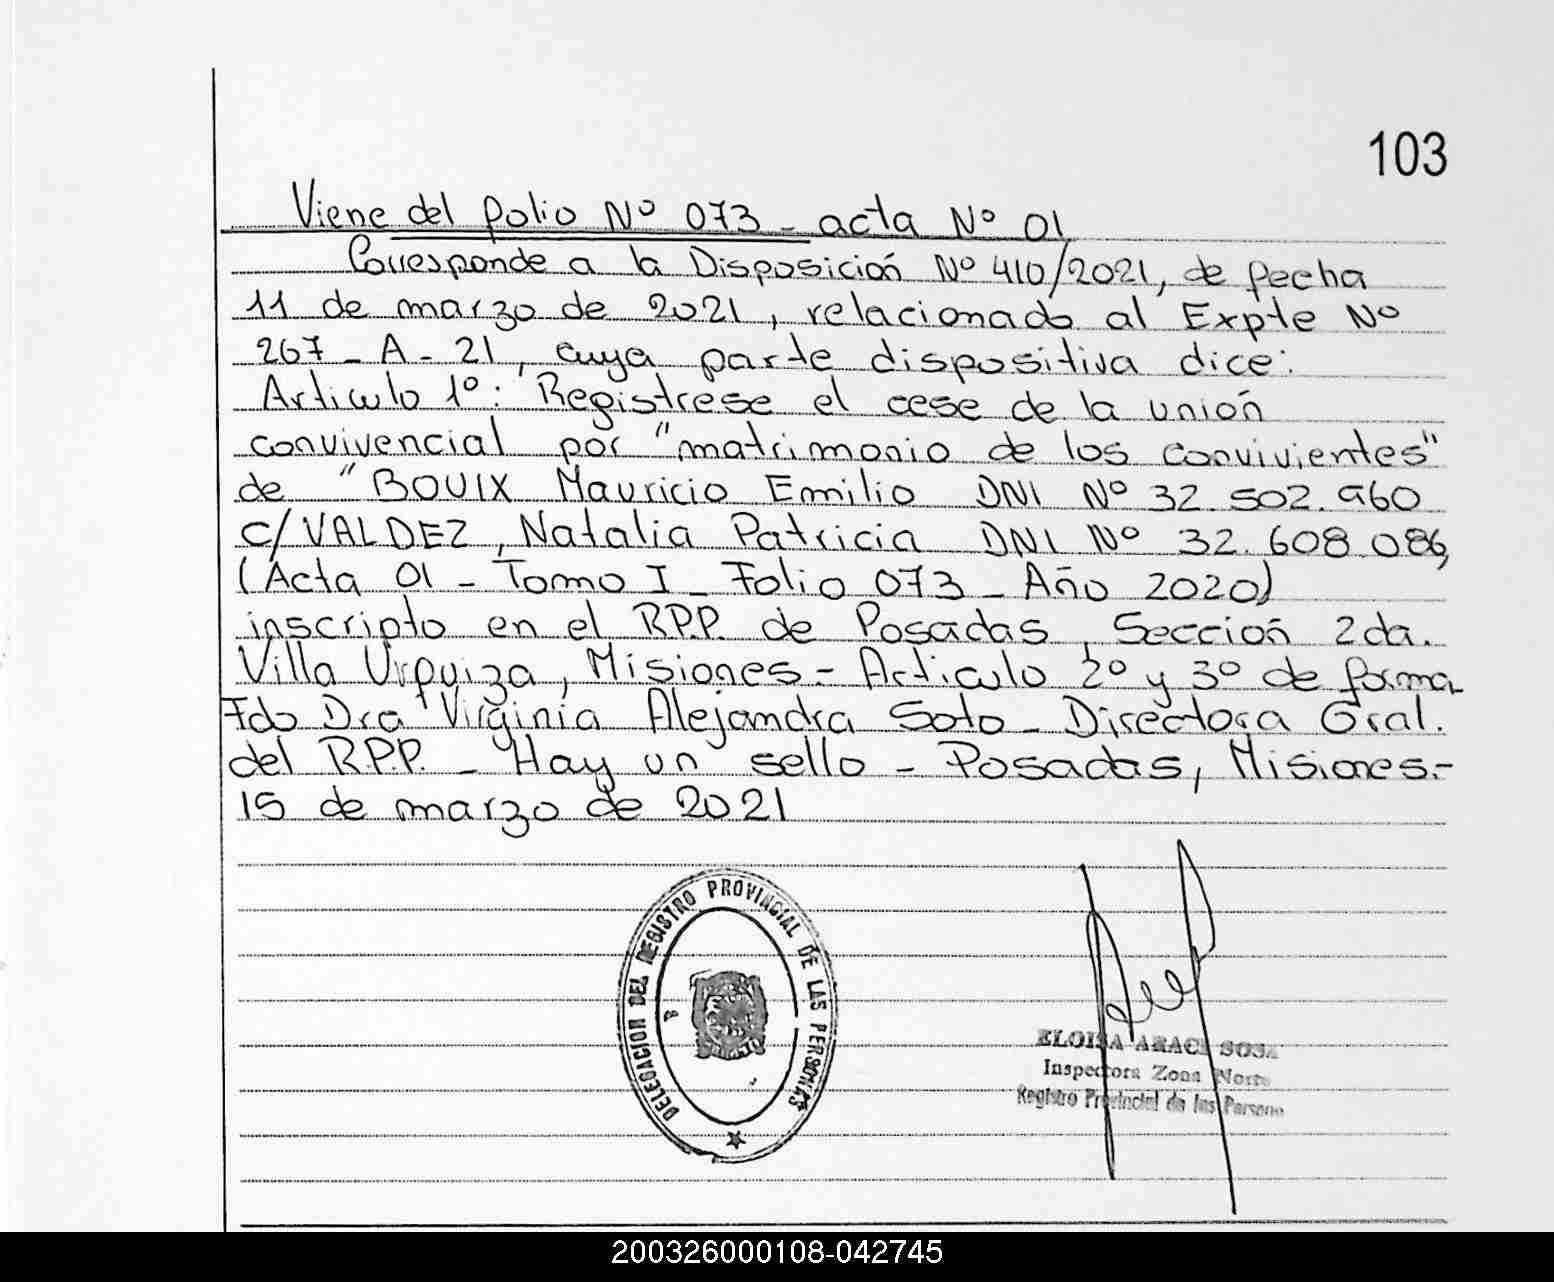 103
Viene del folio Nº 073 - acta Nº 01
Corresponde a la Disposición Nº 410/2021, de fecha
11 de marzo de 2021, relacionado al Expte Nº
267 - A - 21, cuya parte dispositiva dice:
Articulo 1º: Registrese el cese de la unión
convivencial por "matrimonio de los convivientes"
de "BOUIX Mauricio Emilio DNI Nº 32.502.960
c/ VALDEZ, Natalia Patricia DNI Nº 32.608.086,
(Acta 01 - Tomo I - Folio 073 - Año 2020)
inscripto en el R.P.P. de Posadas, Sección 2da.
Villa Urquiza, Misiones.- Articulo 2º y 3º de forma
Fdo Dra Virginia Alejandra Soto - Directora Gral.
del R.P.P. - Hay un sello - Posadas, Misiones.-
15 de marzo de 2021
DELEGACION DEL REGISTRO PROVINCIAL DE LAS PERSONAS
ELOISA ARACI SOSA
Inspectora Zona Norte
Registro Provincial de las Persona
200326000108-042745